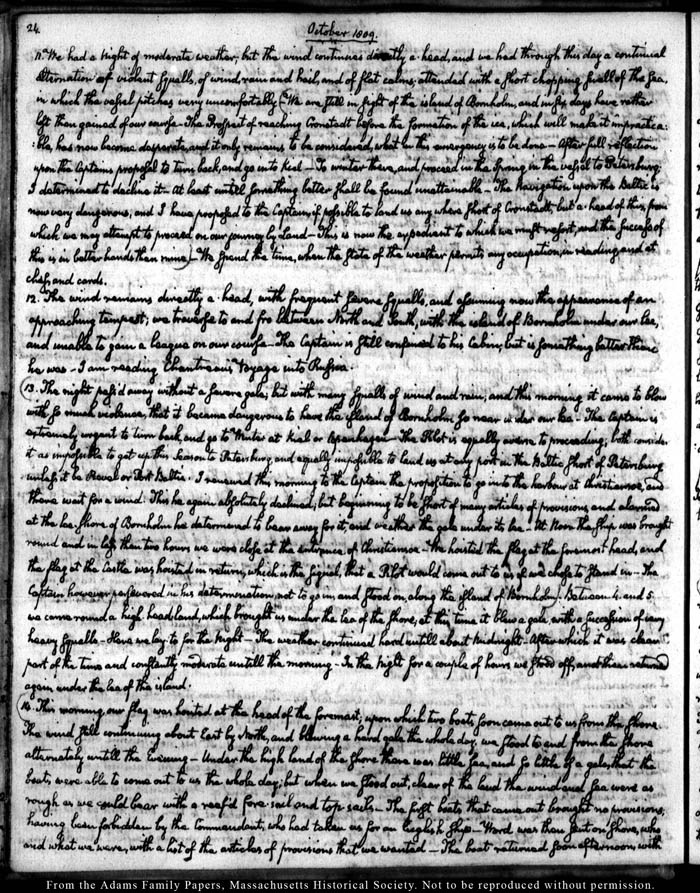 24.
October 1809.
11. We had a Night of moderate weather; but the wind continues directly a head, and we had through this day a continual
alternation of violent squalls, of wind, rain and hail, and of flat calms attended with a short chopping swell of the Sea,
in which the vessel pitches very uncomfortably. We are still in sight of the island of Bornholm, and in six days have rather
lost than gained of our course. The Prospect of reaching Cronstadt before the formation of the ice, which will make it impractica-
:ble, has now become desperate, and it only remains to be considered, what in this emergency is to be done — After full reflection
upon the Captains proposal to turn back, and go into Kiel — To winter there, and proceed in the Spring in the vessel to Petersburg;
I determined to decline it — At least untill something better shall be found unattainable — The Navigation upon the Baltic is
now very dangerous, and I have proposed to the Captain, if possible to land us any where short of Cronstadt but a-head of this, from
which we may attempt to proceed on our journey by Land — This is now the expedient to which we must resort, and the success of
this is in better hands than mine) — We spend the time, when the state of the weather permits any occupation, in reading, and at
chess, and cards.
12. The wind remains directly a-head, with frequent severe squalls, and assuming now the appearance of an
approaching tempest; we traverse to and fro between North and South, with the island of Bornholm under our lee,
and unable to gain a league on our course — The Captain is still confined to his Cabin; but is something better than
he was — I am reading Chantreau's Voyage into Russia.
13. The night pass'd away without a severe gale, but with many squalls of wind and rain; and this morning it came to blow
with so much violence, that it became dangerous to have the island of Bornholm so near under our lee — The Captain is
extremely urgent to turn back, and go to Winter at Kiel or Copenhagen — The Pilot is equally averse to proceeding; both consider
it as impossible to get up this Season to Petersburg, and equally impossible to land us at any port in the Baltic short of Petersburg
unless it be Revel or Port Baltic. I renewed this morning to the Captain the proposition to go into the harbour at Christiansoe, and
there wait for a wind. This he again absolutely declined, but beginning to be short of many articles of provisions, and alarmed
at the lee-shore of Bornholm he determined to bear away for it, and weather the gale under its lee — At Noon the ship was brought
round and in less than two hours we were close at the entrance of Christiansoe — We hoisted the flag at the foremast head, and
the flag at the Castle was hoisted in return, which is the signal, that a Pilot would come out to us if we chose to stand in — The
Captain however persevered in his determination not to go in, and stood on, along the island of Bornholm) — Between 4. and 5.
we came round a high headland, which brought us under the lee of the shore, at this time it blew a gale, with a succession of very
heavy squalls — Here we lay to for the Night — The weather continued hard untill about Midnight — After which it was clear
part of the time and constantly moderate untill the morning — In the Night for a couple of hours we stood off, and then returned
again under the lee of the island.
14. This morning our flag was hoisted at the head of the foremast; upon which two boats soon came out to us from the shore.
The wind still continuing about East by North, and blowing a hard gale the whole day, we stood to and from the shore
alternately untill the Evening — Under the high land of the shore there was little sea, and so little of a gale, that the
boats were able to come out to us the whole day; but when we stood out, clear of the land the wind and sea were as
rough as we could bear with a reef'd fore-sail and top-sails. The first boats that came out brought no provisions,
having been forbidden by the Commandant, who had taken us for an English ship — Word was then sent on shore, who
and what we were, with a list of the articles of provisions that we wanted — The boat returned soon afternoon, with
From the Adams Family Papers, Massachusetts Historical Society. Not to be reproduced without permission.